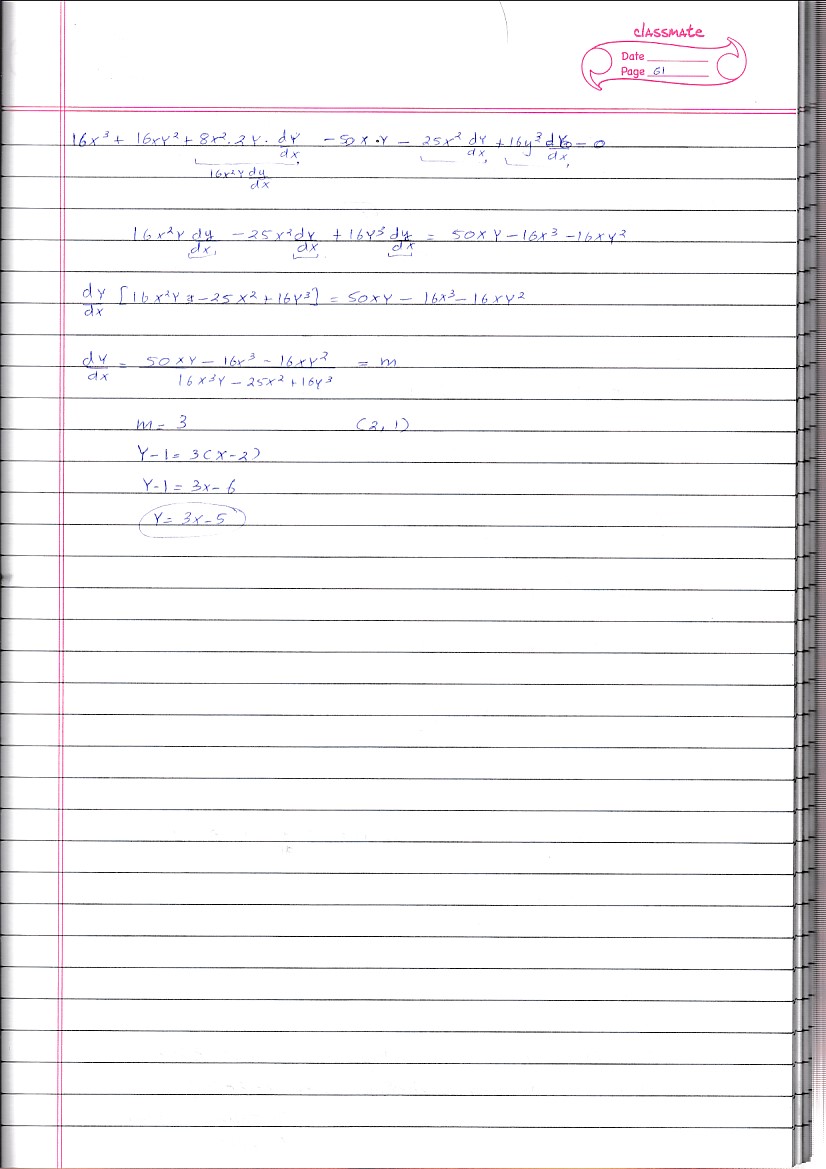 classmate
Date
Page 61
16x³ + 16xy² + 8x²·2y·dy/dx - 50x·y - 25x² dy/dx + 16y³ dy/dx = 0
16x²y dy/dx
16x²y dy/dx - 25x² dy/dx + 16y³ dy/dx = 50xy - 16x³ - 16xy²
dy/dx [16x²y - 25x² + 16y³] = 50xy - 16x³ - 16xy²
dy/dx = (50xy - 16x³ - 16xy²)/(16x³y - 25x² + 16y³) = m
m = 3 (2, 1)
y - 1 = 3(x - 2)
y - 1 = 3x - 6
y = 3x - 5